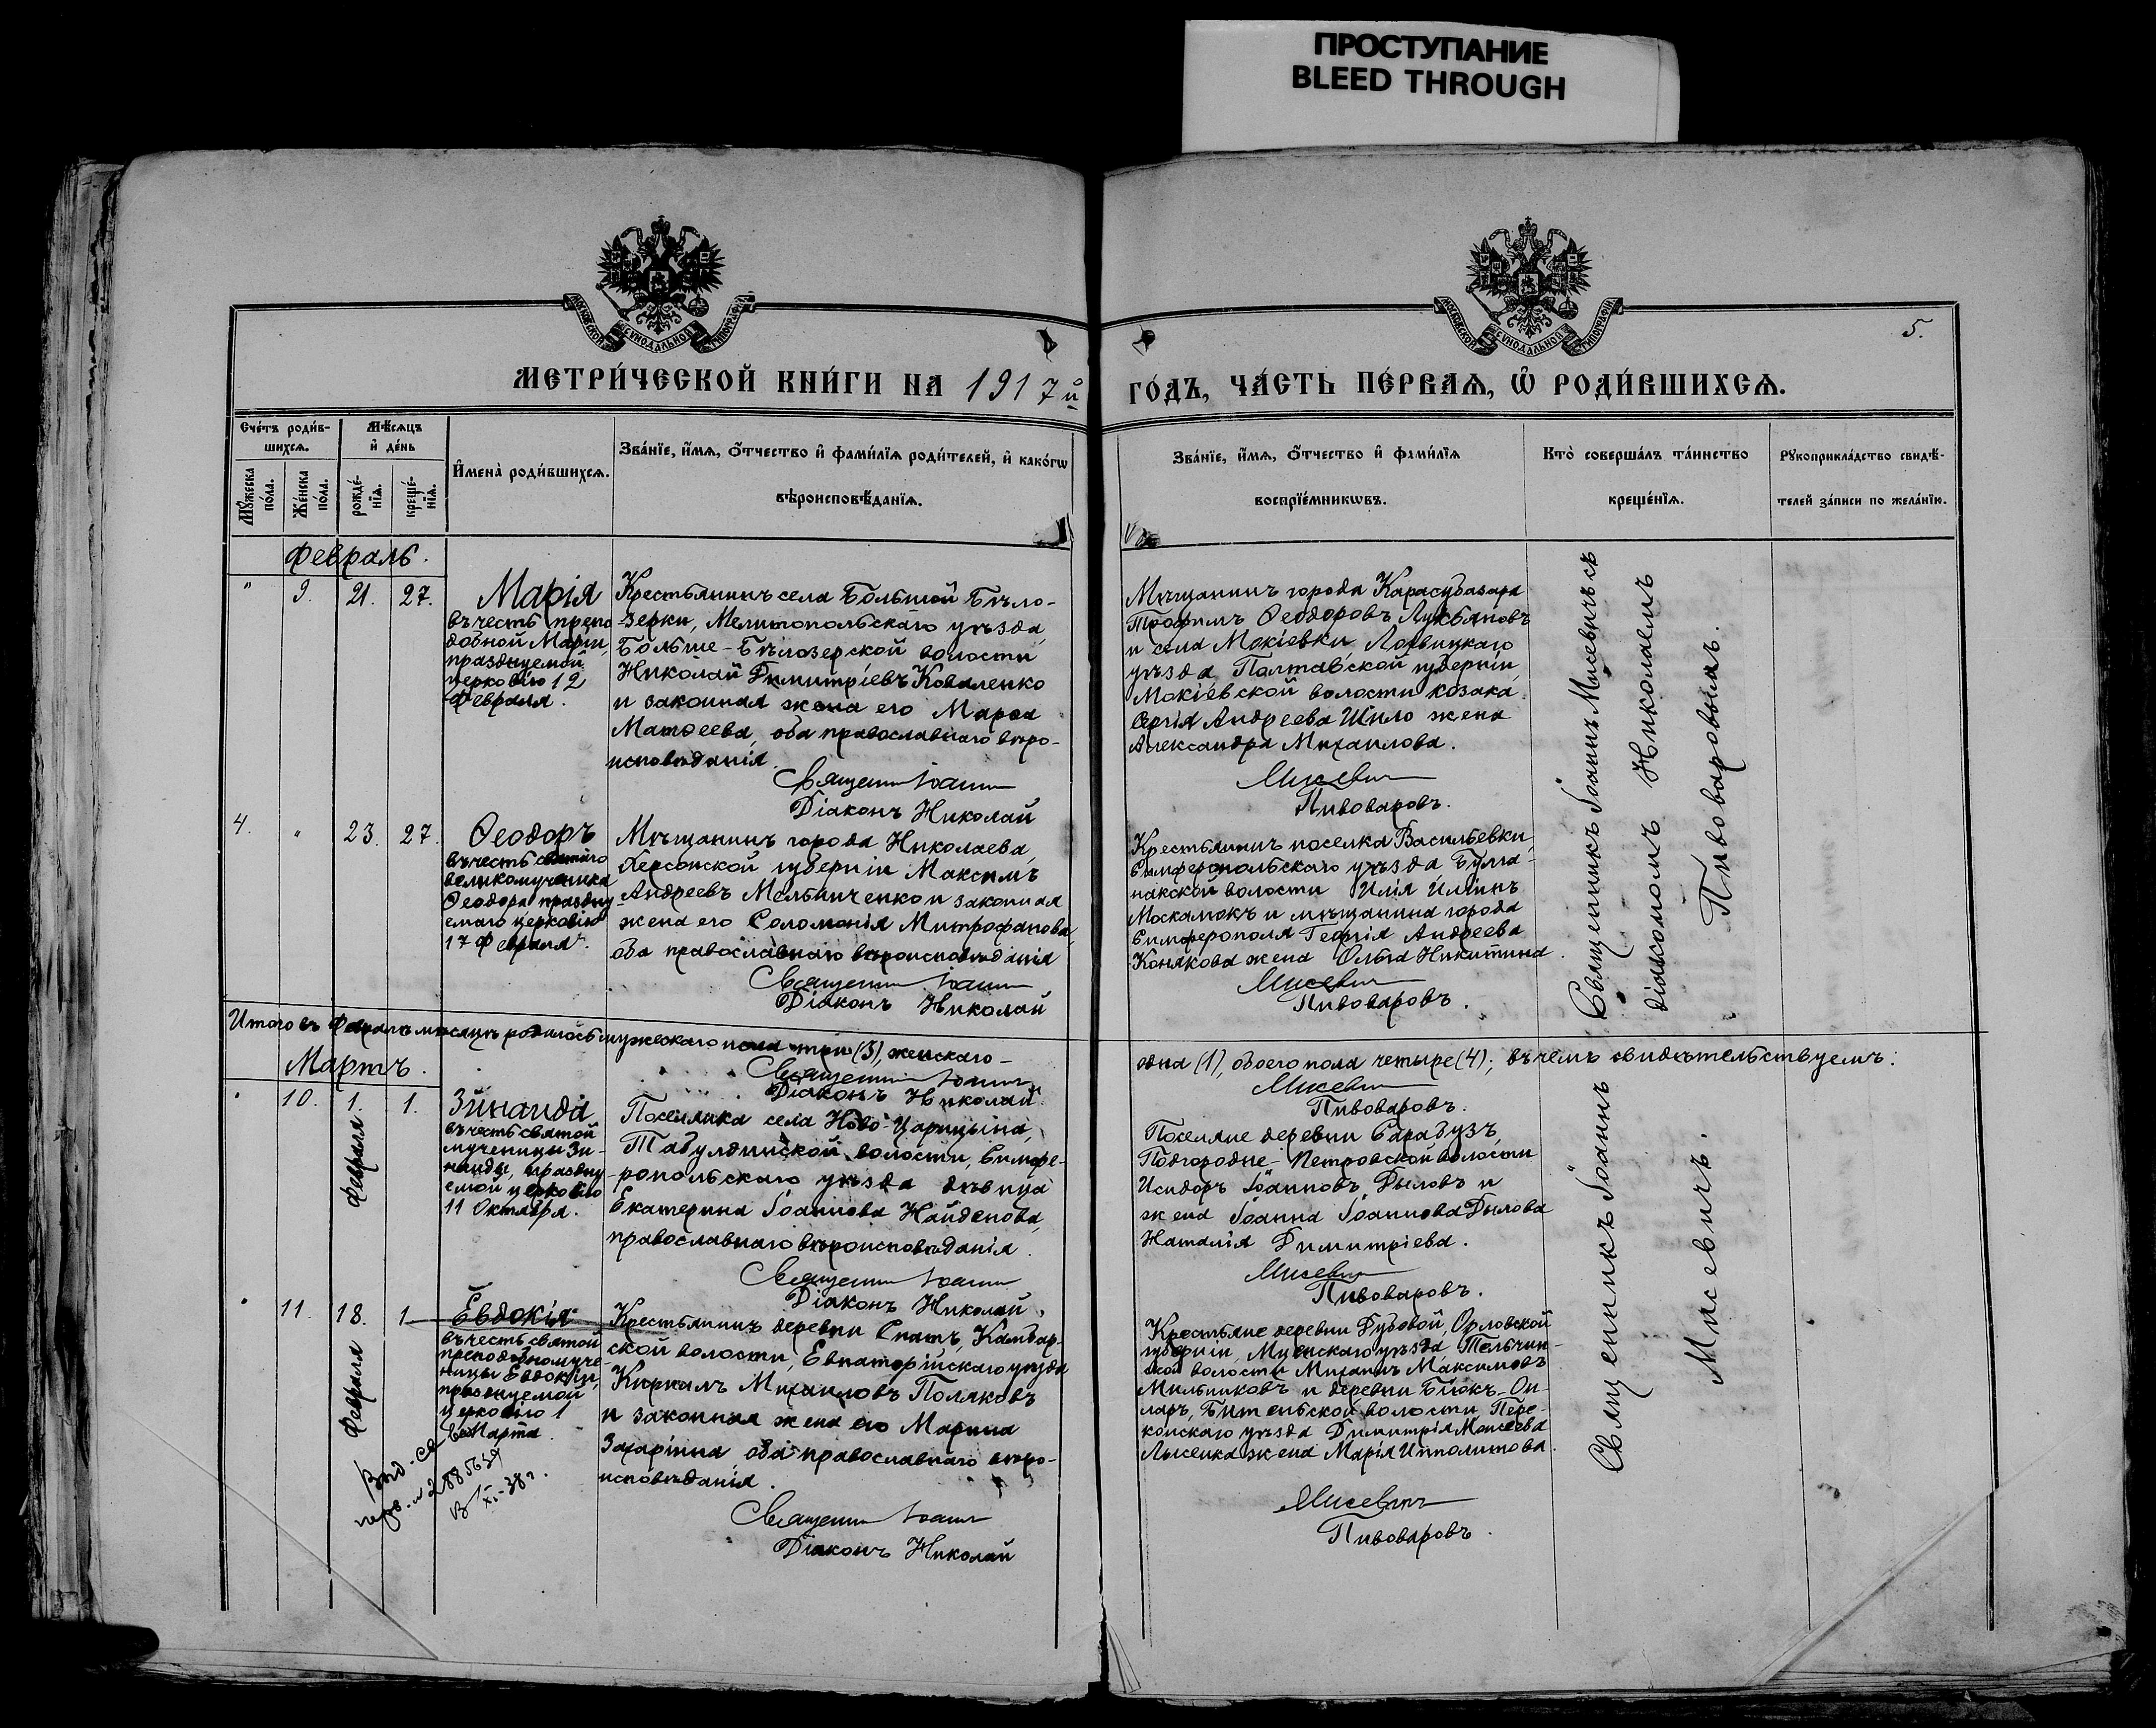 ПРОСТУПАНИЕ
BLEED THROUGH
МОСКОВСКОЙ СѴНОДАЛЬНОЙ ТИПОГРАФІИ
МОСКОВСКОЙ СѴНОДАЛЬНОЙ ТИПОГРАФІИ
5.
МЕТРИ́ЧЕСКОЙ КНИ́ГИ НА 1917й ГО́ДЪ, ЧА́СТЬ ПЕ́РВАѦ, Ѿ РОДИ́ВШИХСѦ.
Сче́тъ роди́в-
шихсѧ.
Мѣ́сѧцъ
и҆ де́нь
Мꙋ́жеска
по́ла.
Же́нска
по́ла.
рожде́-
нїѧ.
креще́-
нїѧ.
И҆мена̀ роди́вшихсѧ.
Зва́нїе, и҆́мѧ, о҆́тчество и҆ фами́лїѧ роди́телей, и҆ како́гѡ
вѣроисповѣ́данїѧ.
Зва́нїе, и҆́мѧ, о҆́тчество и҆ фами́лїѧ
воспрїе́мникѡвъ.
Кто̀ соверша́лъ та́инство
креще́нїѧ.
Рꙋкоприкла́дство свидѣ́-
телей за́писи по жела́нїю.
Февраль.
" 9. 21. 27.
Марія
въ честь препо
добной Маріи,
празднуемой
церковію 12
Февраля.
Крестьянинъ села Большой Бѣло-
зерки, Мелитопольскаго уѣзда,
Больше-Бѣлозерской волости
Николай Димитріевъ Коваленко
и законная жена его Марѳа
Матѳеева, оба православнаго вѣро-
исповѣданія.
Священн Іоанн
Діаконъ Николай
Мѣщанинъ города Карасубазара
Трофимъ Ѳеодоровъ Лукьяновъ
и села Мокіевки, Лохвицкаго
уѣзда Полтавской губерніи,
Мокіевской волости козака
Сергія Андреева Шило жена
Александра Михаилова.
Мисевич
Пивоваровъ.
Священникъ Іоаннъ Мисевичъ съ
діакономъ Николаемъ
Пивоваровымъ.
4. " 23. 27.
Ѳеодоръ
въ честь святаго
великомученика
Ѳеодора праздну-
емаго церковію
17 Февраля.
Мѣщанинъ города Николаева,
Херсонской губерніи Максимъ
Андреевъ Мельниченко и законная
жена его Соломонія Митрофанова,
оба православнаго вѣроисповѣданія
Священн Іоанн
Діаконъ Николай
Крестьянинъ поселка Васильевки,
Симферопольскаго уѣзда Булга-
накской волости Илія Иліинъ
Москаленко и мѣщанина города
Симферополя Георгія Андреева
Конякова жена Ольга Никитина.
Мисевич
Пивоваровъ.
Итого въ Февралѣ мѣсяцѣ родилось мужескаго пола три (3), женскаго-
одна (1), обоего пола четыре (4); въ чемъ свидѣтельствуемъ:
Священн Іоанн
Діаконъ Николай
Мисевич
Пивоваровъ.
Мартъ.
" 10. 1. 1.
Февраля
Зинаида
въ честь святой
мученицы Зи-
наиды, праздну
емой церковію
11 Октября.
Поселянка села Ново-Царицына,
Табулдинской волости, Симфе-
ропольскаго уѣзда дѣвица
Екатерина Іоаннова Найденова,
православнаго вѣроисповѣданія.
Священн Іоанн
Діаконъ Николай
Поселяне деревни Сарабузъ,
Подгородне-Петровской волости
Исидоръ Іоанновъ Дыловъ и
жена Іоанна Іоаннова Дылова
Наталія Димитріева.
Мисевич
Пивоваровъ.
Священникъ Іоаннъ
Мисевичъ.
" 11. 18. 1
Февраля
Евдокія
въ честь святой
преподобномуче-
ницы Евдокіи,
празднуемой
церковію 1
Марта.
Крестьянинъ деревни Спатъ, Камбар-
ской волости, Евпаторійскаго уѣзда
Кириллъ Михаиловъ Поляковъ
и законная жена его Марина
Захаріина, оба православнаго вѣро-
исповѣданія.
Священн Іоанн
Діаконъ Николай
Крестьяне деревни Дубовой, Орловской
губерніи, Мценскаго уѣзда Тельчин-
ской волости Михаилъ Максимовъ
Мильниковъ и деревни Біюкъ-Он-
ларъ, Битенбской волости, Пере-
копскаго уѣзда Димитрія Моисеева
Лысенка жена Марія Ипполитова.
Мисевич
Пивоваровъ.
Выд. св-во
XI-38г.